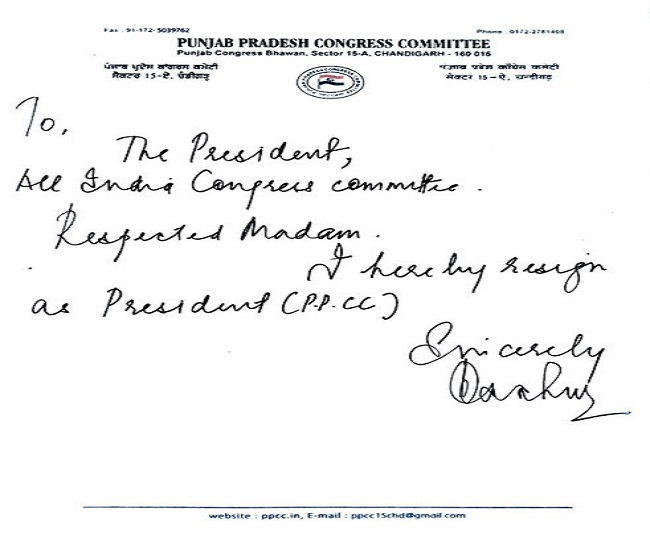 Fax : 91-172-5039762
Phone : 0172-2781408
PUNJAB PRADESH CONGRESS COMMITTEE
Punjab Congress Bhawan, Sector 15-A, CHANDIGARH - 160 015
ਪੰਜਾਬ ਪ੍ਰਦੇਸ਼ ਕਾਂਗਰਸ ਕਮੇਟੀ
ਸੈਕਟਰ 15-ਏ, ਚੰਡੀਗੜ੍ਹ
पंजाब प्रदेश काँग्रेस कमेटी
सेक्टर 15-ऐ, चण्डीगढ़
To,
The President,
All India Congress committee.
Respected Madam.
I hereby resign
as President (P.P.CC)
Sincerely
website : ppcc.in, E-mail : ppcc15chd@gmail.com